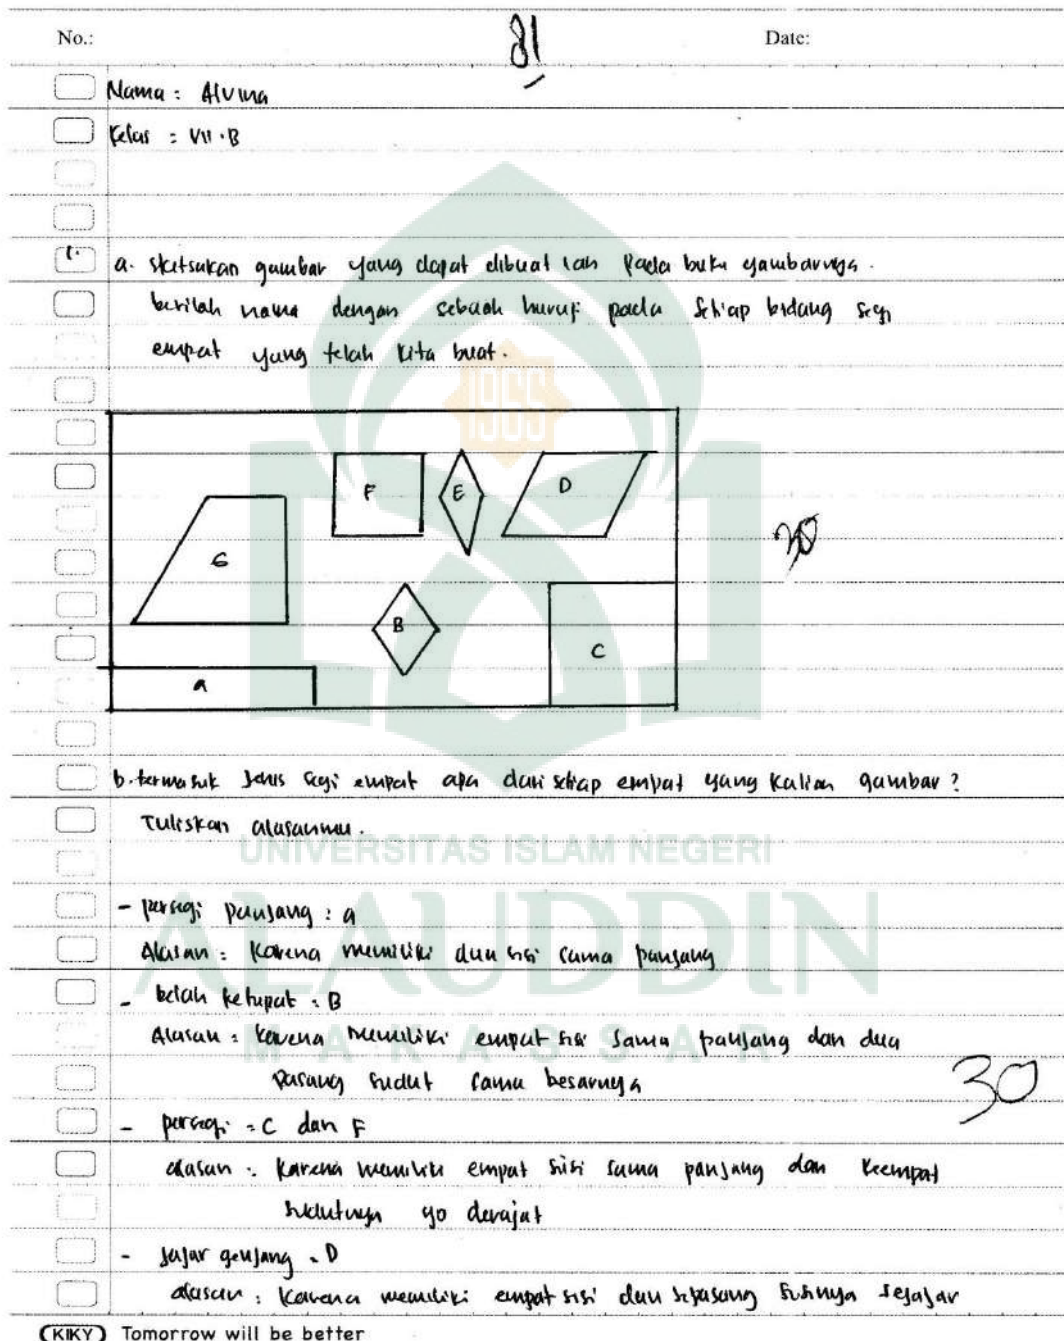 No.:
81
Date:
Nama : Alvina
Kelas : VII.B
1.
a. sketsakan gambar yang dapat dibuat lah pada buku gambarnya.
berilah nama dengan sebuah huruf pada setiap bidang segi
empat yang telah kita buat.
1965
F
E
D
G
30
B
C
a
b. termasuk jenis segi empat apa dari setiap empat yang kalian gambar?
Tuliskan alasanmu.
UNIVERSITAS ISLAM NEGERI
ALAUDDIN
MAKASSAR
- persegi panjang : a
Alasan : Karena memiliki dua sisi sama panjang
- belah ketupat : B
Alasan : Karena memiliki empat sisi sama panjang dan dua
pasang sudut sama besarnya
30
- persegi : C dan F
alasan : Karena memiliki empat sisi sama panjang dan keempat
sudutnya 90 derajat
- jajar genjang : D
alasan : Karena memiliki empat sisi dan sepasang sisinya sejajar
KIKY Tomorrow will be better